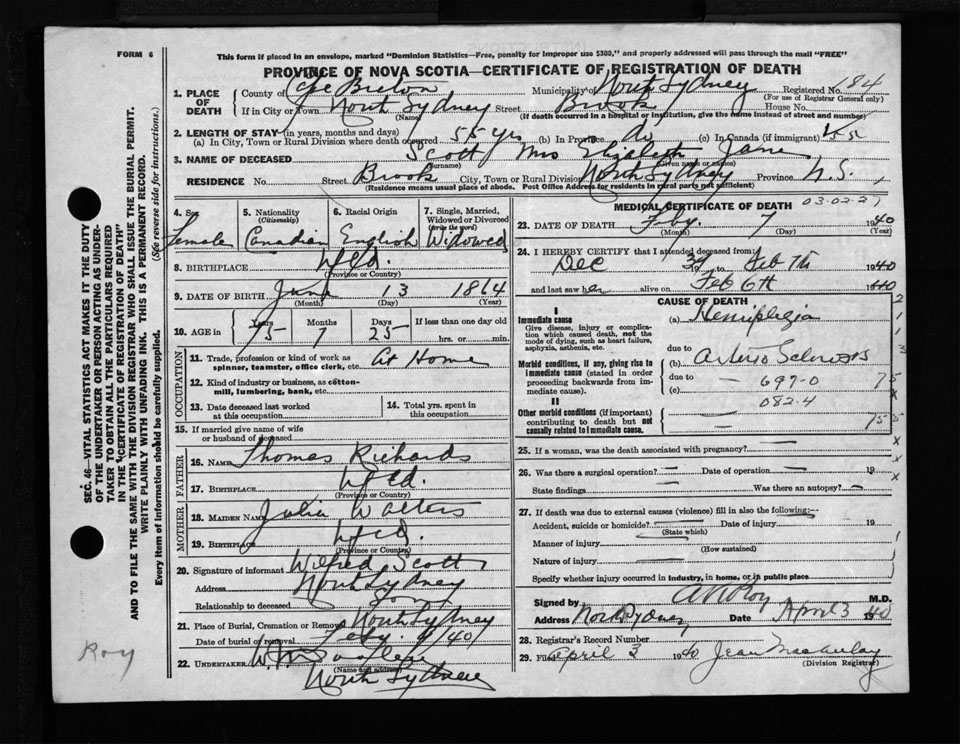 FORM 6
This form if placed in an envelope, marked "Dominion Statistics—Free, penalty for improper use $300," and properly addressed will pass through the mail "FREE"
PROVINCE OF NOVA SCOTIA—CERTIFICATE OF REGISTRATION OF DEATH
1. PLACE OF DEATH County of Cape Breton Municipality of North Sydney Registered No. 184
(For use of Registrar General only)
If in City or Town North Sydney Street Brook House No.
(Name) (If death occurred in a hospital or institution, give the name instead of street and number)
2. LENGTH OF STAY (in years, months and days)
(a) In City, Town or Rural Division where death occurred 55 yrs (b) In Province do (c) In Canada (if immigrant)
3. NAME OF DECEASED Scott Mrs Elizabeth Jane
(Surname) (Given name or names)
RESIDENCE No. Street Brook City, Town or Rural Division North Sydney Province N.S.
(Residence means usual place of abode. Post Office Address for residents in rural parts not sufficient)
4. Sex Female
5. Nationality (Citizenship) Canadian
6. Racial Origin English
7. Single, Married, Widowed or Divorced (write the word) Widowed
8. BIRTHPLACE Nfld.
(Province or Country)
9. DATE OF BIRTH June 13 1864
(Month) (Day) (Year)
10. AGE in Years 75 Months 7 Days 25 If less than one day old
hrs. or min.
OCCUPATION
11. Trade, profession or kind of work as spinner, teamster, office clerk, etc. At Home
12. Kind of industry or business, as cotton-mill, lumbering, bank, etc.
13. Date deceased last worked at this occupation
14. Total yrs. spent in this occupation
15. If married give name of wife or husband of deceased
FATHER
16. NAME Thomas Richards
17. BIRTHPLACE Nfld.
(Province or Country)
MOTHER
18. MAIDEN NAME Julia Walters
19. BIRTHPLACE Nfld.
(Province or Country)
20. Signature of informant Wilfred Scott
Address North Sydney
Relationship to deceased Son
21. Place of Burial, Cremation or Removal North Sydney
Date of burial or removal Feby. 9/40
22. UNDERTAKER
(Name and address)
North Sydney
MEDICAL CERTIFICATE OF DEATH 03-02-27
23. DATE OF DEATH Feby. 7 1940
(Month) (Day) (Year)
24. I HEREBY CERTIFY that I attended deceased from:
Dec to Feb 7th 1940
and last saw her alive on Feb 6th 1940
CAUSE OF DEATH
I
Immediate cause
Give disease, injury or complication which caused death, not the mode of dying, such as heart failure, asphyxia, asthenia, etc.
(a) Hemiplegia
due to
Morbid conditions, if any, giving rise to immediate cause (stated in order proceeding backwards from immediate cause).
(b) Arterio Sclerosis
due to — 697-0
(c) 082.4
II
Other morbid conditions (if important) contributing to death but not causally related to immediate cause.
25. If a woman, was the death associated with pregnancy? —
26. Was there a surgical operation? — Date of operation — 19
State findings Was there an autopsy? —
27. If death was due to external causes (violence) fill in also the following:—
Accident, suicide or homicide? Date of injury 19
(State which)
Manner of injury
(How sustained)
Nature of injury
Specify whether injury occurred in industry, in home, or in public place
Signed by M.D.
Address North Sydney Date April 3 1940
28. Registrar's Record Number
29. Filed April 3 1940 Jean Macaulay
(Division Registrar)
SEC. 46—VITAL STATISTICS ACT MAKES IT THE DUTY
OF THE UNDERTAKER OR PERSON ACTING AS UNDER-
TAKER TO OBTAIN ALL THE PARTICULARS REQUIRED
IN THE "CERTIFICATE OF REGISTRATION OF DEATH"
AND TO FILE THE SAME WITH THE DIVISION REGISTRAR WHO SHALL ISSUE THE BURIAL PERMIT.
WRITE PLAINLY WITH UNFADING INK. THIS IS A PERMANENT RECORD.
Every item of information should be carefully supplied. (See reverse side for instructions.)
Roy